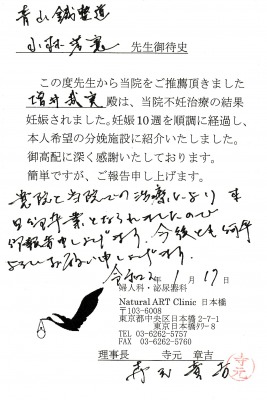 青山鍼整道
小林 先生御待史
この度先生から当院をご推薦頂きました
殿は、当院不妊治療の結果
妊娠されました。妊娠10週を順調に経過し、
本人希望の分娩施設に紹介いたしました。
御高配に深く感謝いたしております。
簡単ですが、ご報告申し上げます。
貴院と当院での治療により 本
日卒業となられましたので
御報告申し上げます。今後とも何卒
よろしくお願い申し上げます。
令和2年 1月17日
婦人科・泌尿器科
Natural ART Clinic 日本橋
〒103-6008
東京都中央区日本橋 2-7-1
東京日本橋タワー8
TEL 03-6262-5757
FAX 03-6262-5760
理事長 寺元 章吉
寺元